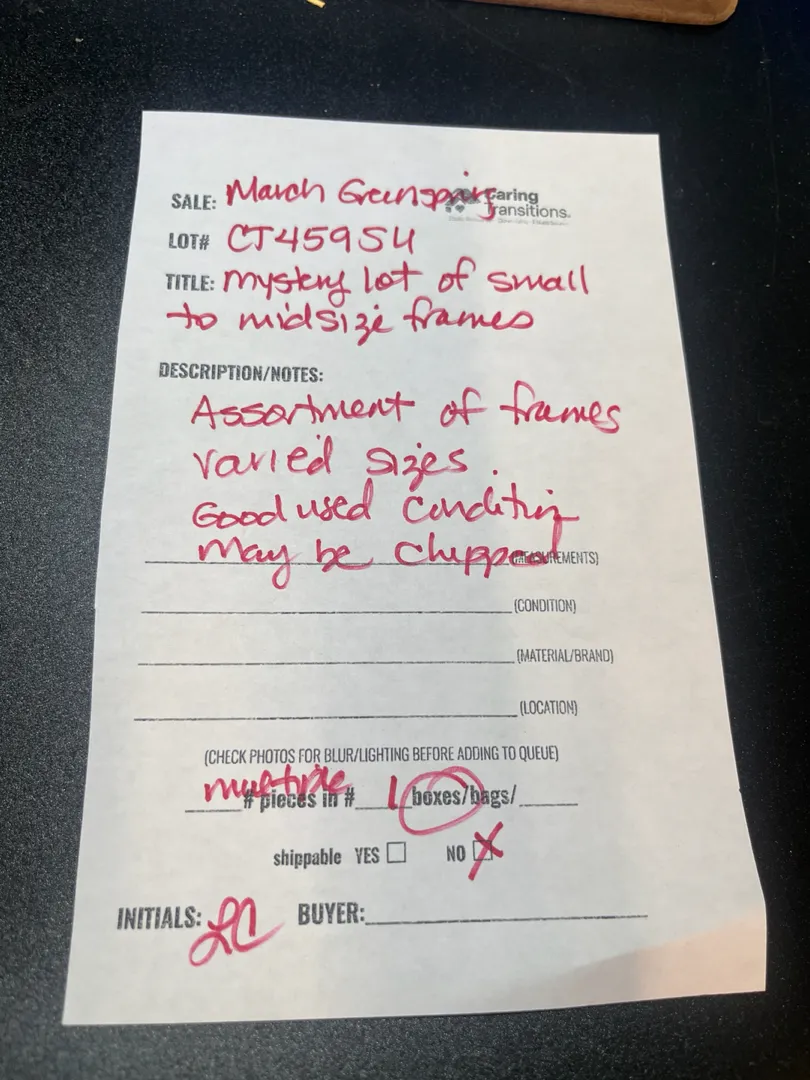 SALE: March Greenspring
Caring
Transitions.
LOT# CT45954
TITLE: Mystery lot of small
to midsize frames
DESCRIPTION/NOTES:
Assortment of frames
varied sizes.
Good used condition
May be chipped (MEASUREMENTS)
(CONDITION)
(MATERIAL/BRAND)
(LOCATION)
(CHECK PHOTOS FOR BLUR/LIGHTING BEFORE ADDING TO QUEUE)
multiple # pieces in # 1 boxes/bags/
shippable YES ☐ NO ☒
INITIALS: LC BUYER: